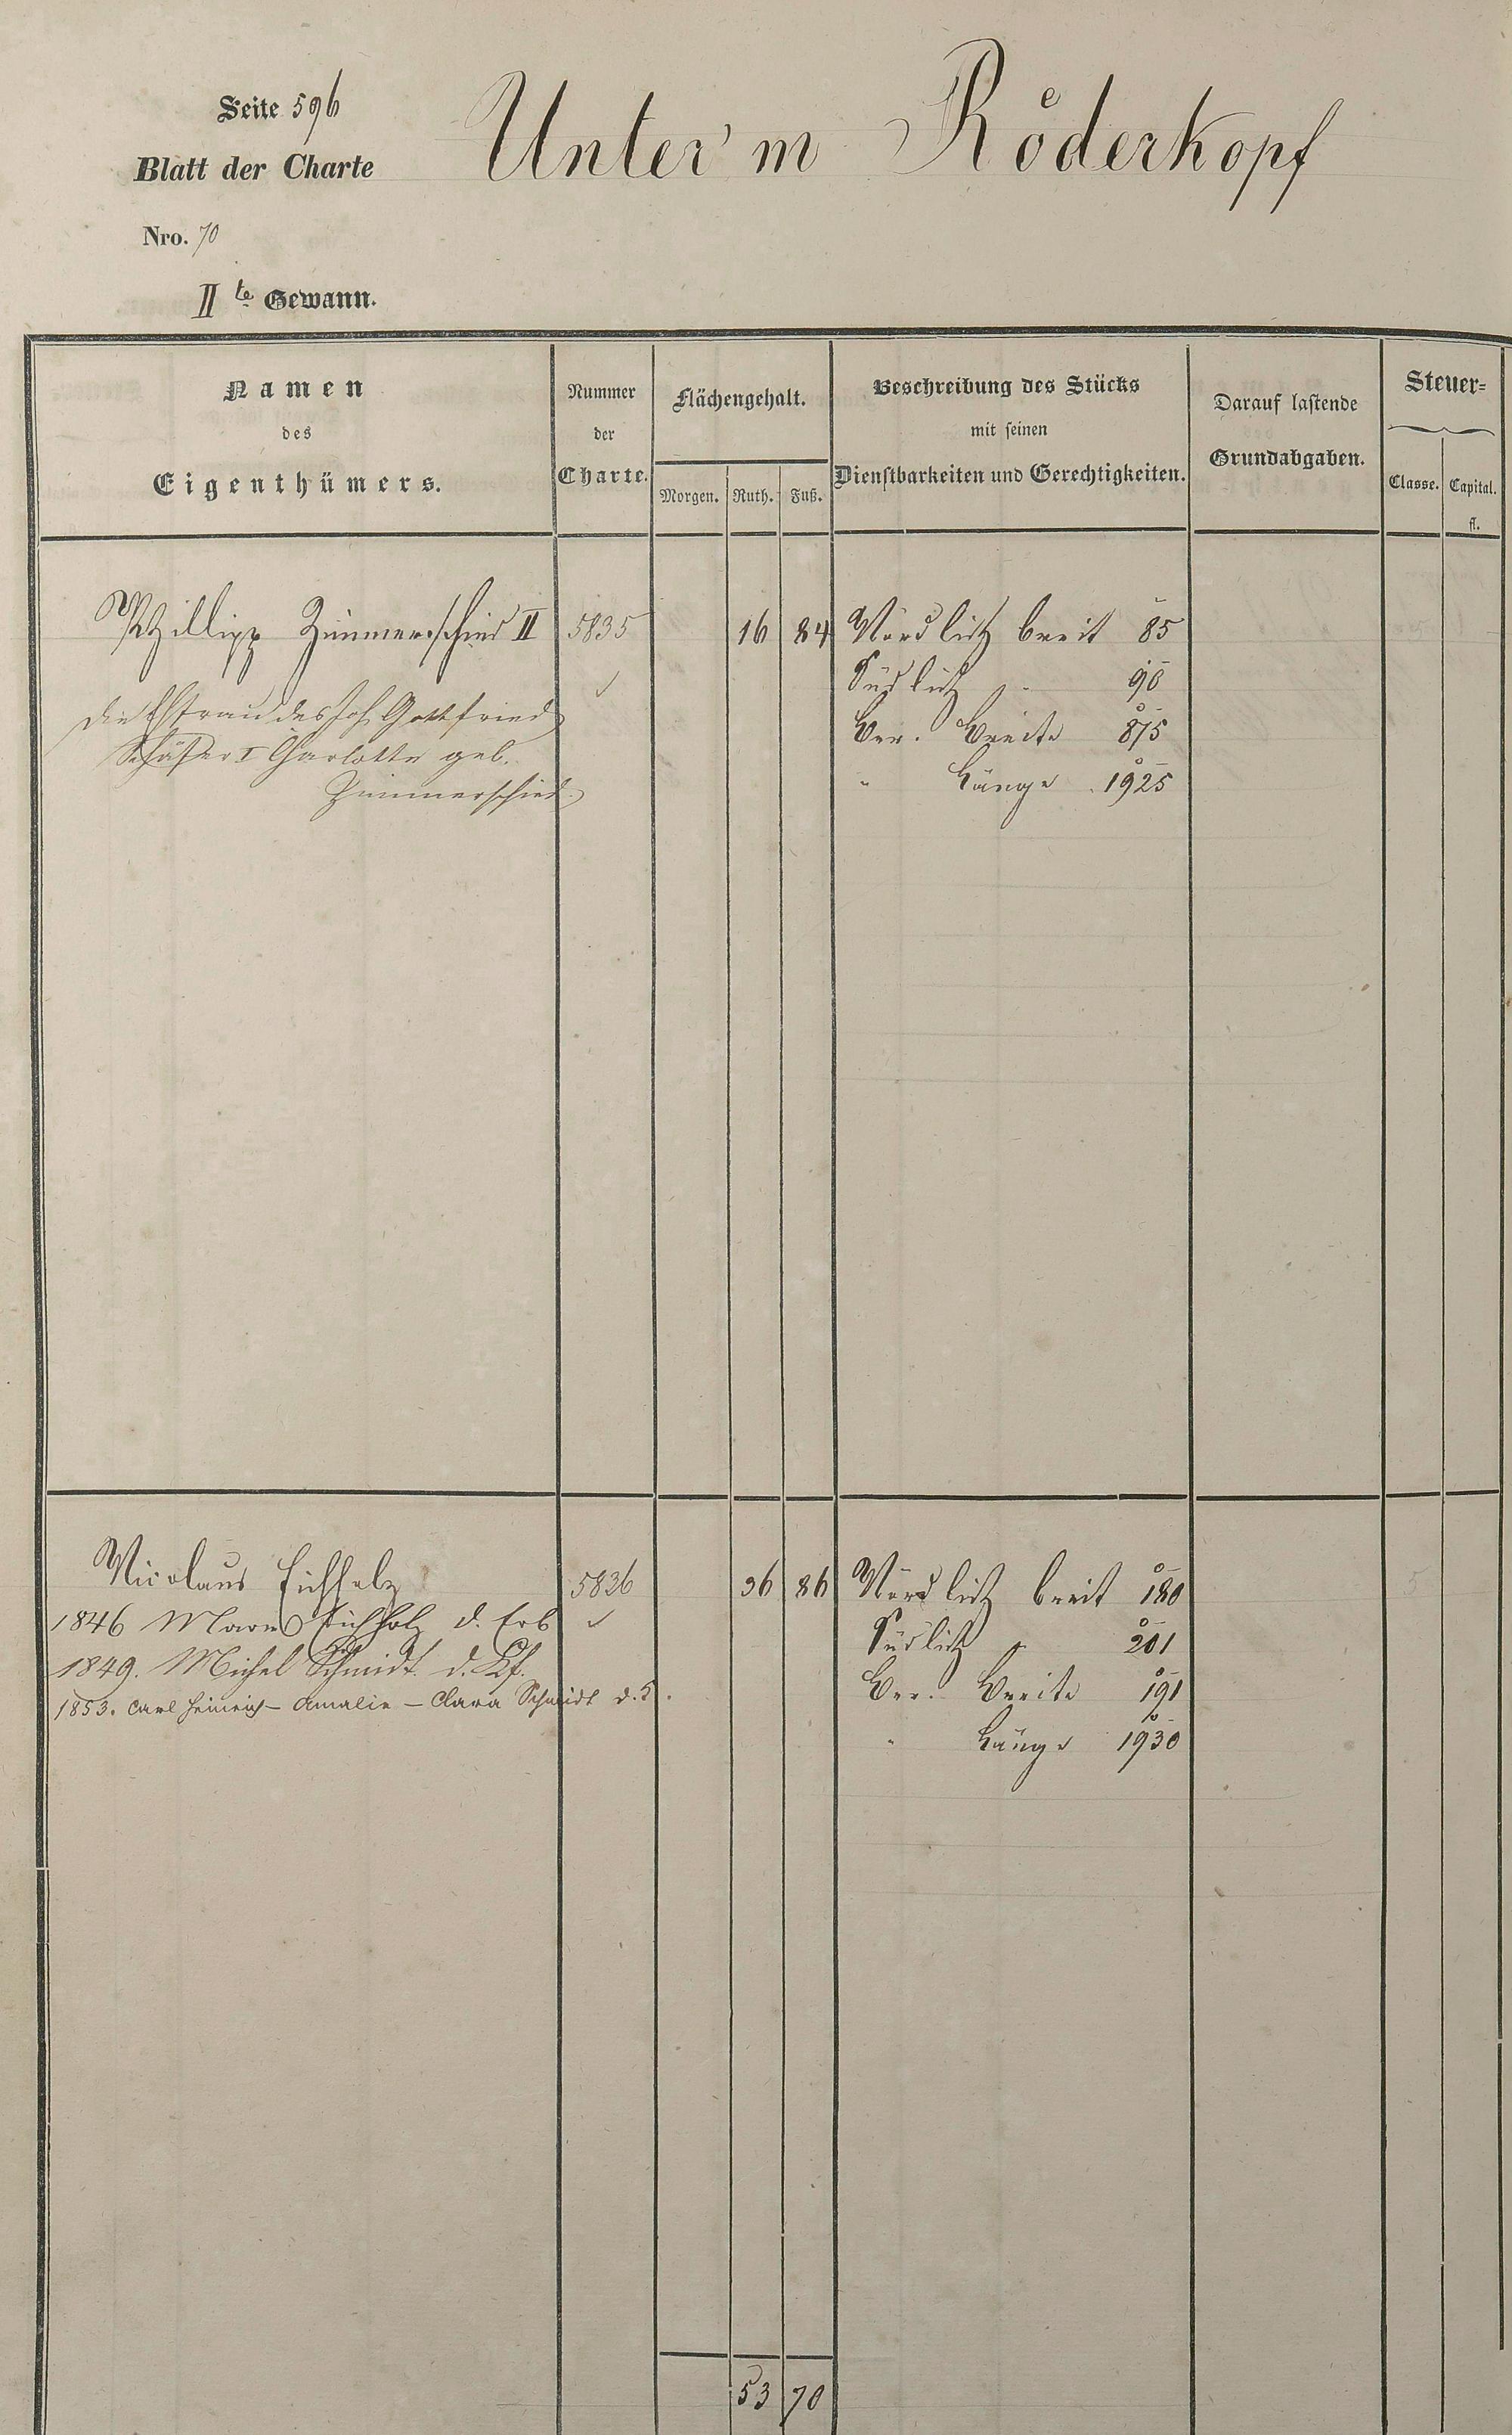 Seite 596
Unter'm Röderkopf
Blatt der Charte
Nro. 70
IIte Gewann.
Namen
des
Eigenthümers.
Nummer
der
Charte.
Flächengehalt.
Morgen. Ruth. Fuß.
Beschreibung des Stücks
mit seinen
Dienstbarkeiten und Gerechtigkeiten.
Darauf lastende
Grundabgaben.
Steuer-
Classe. Capital.
fl.
Phillipp Zimmerschied II 5835 16 84 Nördlich breit 85
Südlich " 90
die Ehfrau des Joh Gottfried
Ber. Breite 875
Schäfer I Charlotte geb.
Zimmerschied.
" Länge 1925
Nicolaus Eichholz 5836 36 86 Nördlich breit 180
1846 Eichholz d. Erb
Südlich " 201
1849. Michel Schmidt d. Kf.
Ber. Breite 191
1853. Carl Heinrich - Amalie - Clara Schmidt
" Länge 1930
53 70